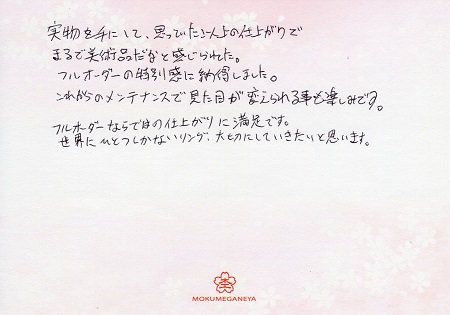 実物を手にして、思っていた以上の仕上がりで
まるで美術品だなと感じられた。
フルオーダーの特別感に納得しました。
これからのメンテナンスで見た目が変えられる事も楽しみです。
フルオーダーならではの仕上がりに満足です。
世界にひとつしかないリング、大切にしていきたいと思います。
MOKUMEGANEYA